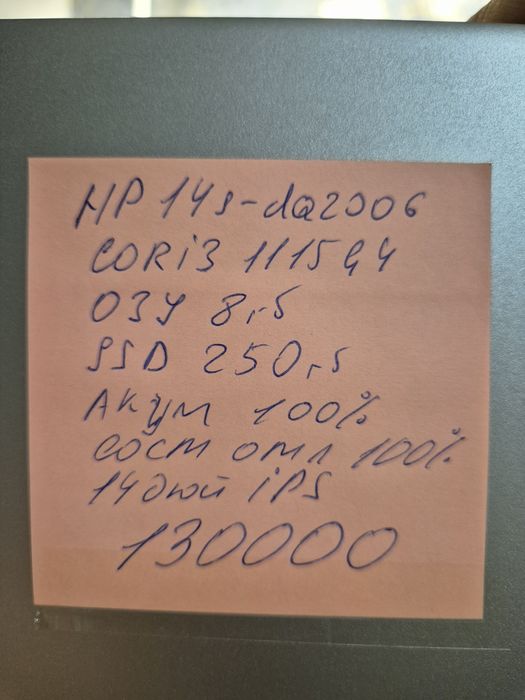 HP 14s-dq2006
CORi3 1115G4
ОЗУ 8гб
SSD 250гб
Акум 100%
сост отл 100%
14 дюй iPS
130000